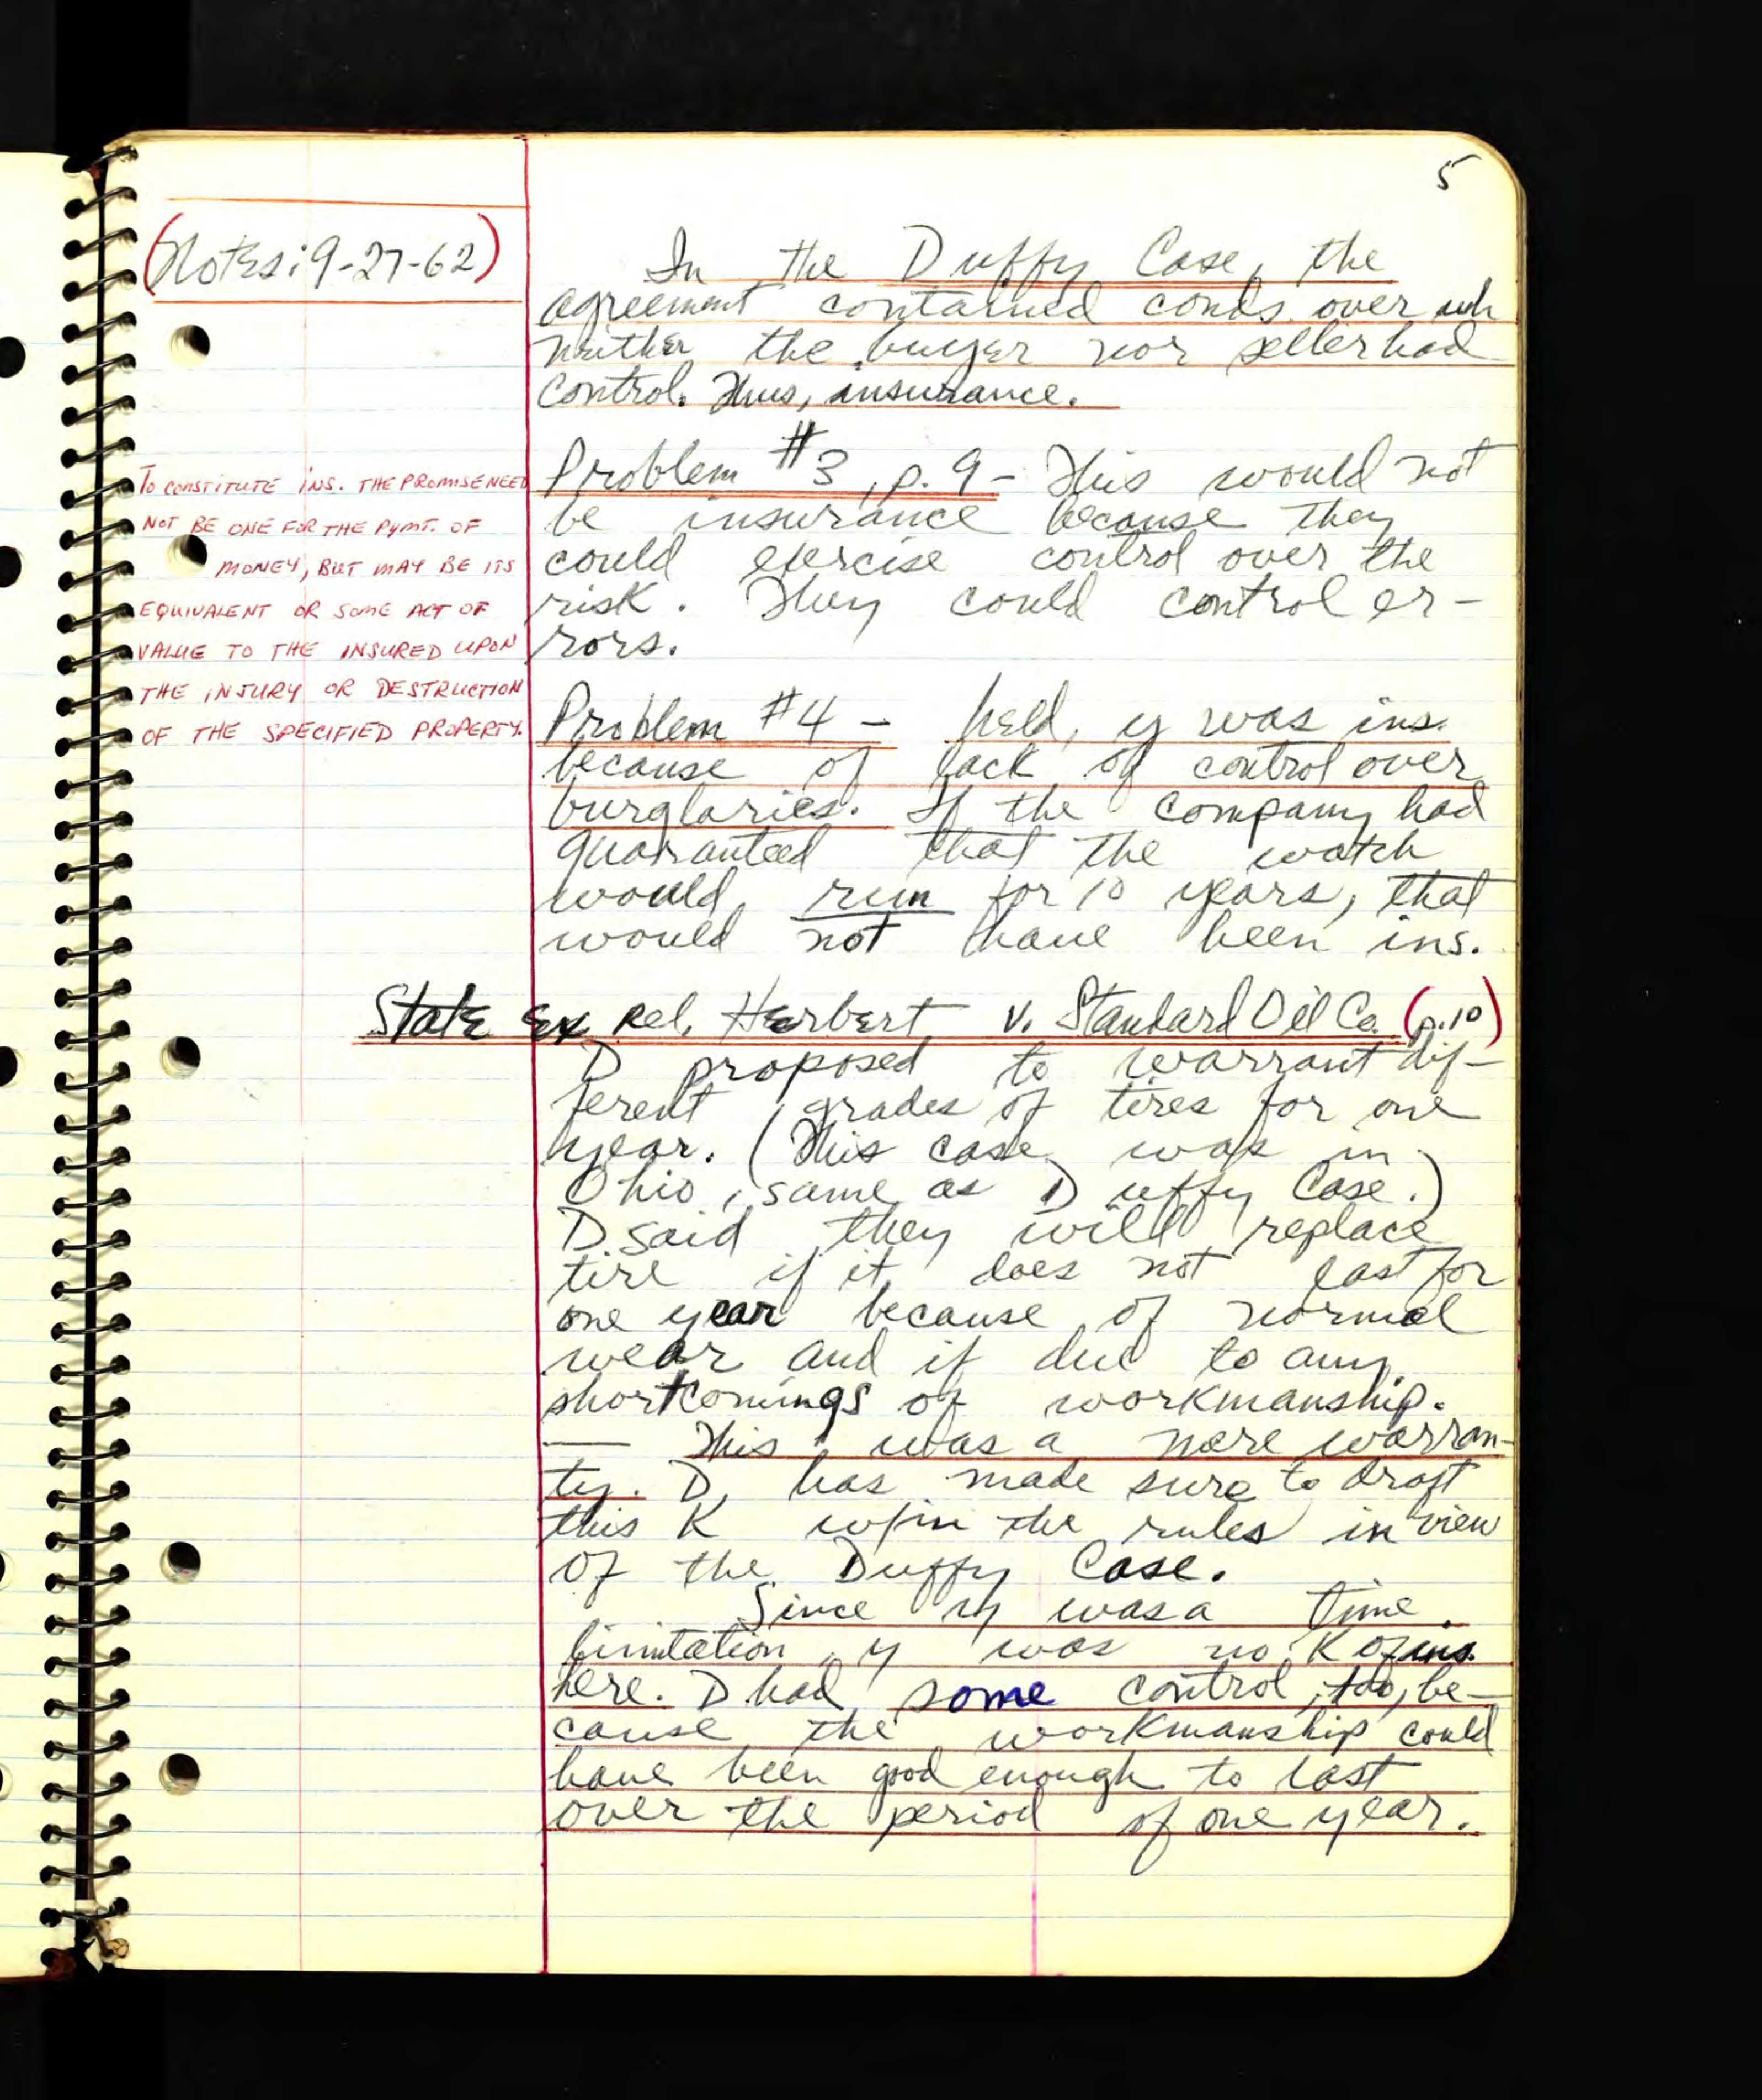 5
(Notes: 9-27-62)
In the Duffy Case, the
agreement contained conds. over wh
neither the buyer nor seller had
control. Thus, insurance.
TO CONSTITUTE INS. THE PROMISE NEED
NOT BE ONE FOR THE PYMT. OF
MONEY, BUT MAY BE ITS
EQUIVALENT OR SOME ACT OF
VALUE TO THE INSURED UPON
THE INJURY OR DESTRUCTION
OF THE SPECIFIED PROPERTY.
Problem #3, p. 9 - This would not
be insurance because they
could exercise control over the
risk. They could control er-
rors.
Problem #4 - held, y was ins.
because of lack of control over
burglaries. If the company had
guaranteed that the watch
would run for 10 years, that
would not have been ins.
State ex rel. Herbert v. Standard Oil Co. (p.10)
D proposed to warrant dif-
ferent grades of tires for one
year. (This case was in
Ohio, same as Duffy Case.)
D said they will replace
tire if it does not last for
one year because of normal
wear and if due to any
shortcomings of workmanship.
— This was a mere warran-
ty. D has made sure to draft
this K w/in the rules in view
of the Duffy Case.
Since y was a time
limitation, y was no K of ins.
here. D had some control, too, be-
cause the workmanship could
have been good enough to last
over the period of one year.